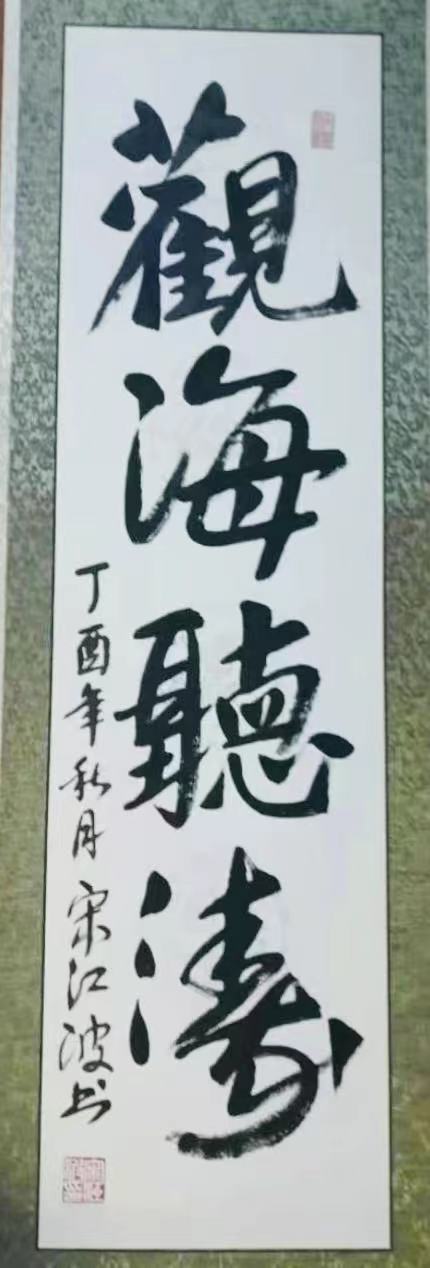 觀海聽濤
丁酉年秋月宋江波书